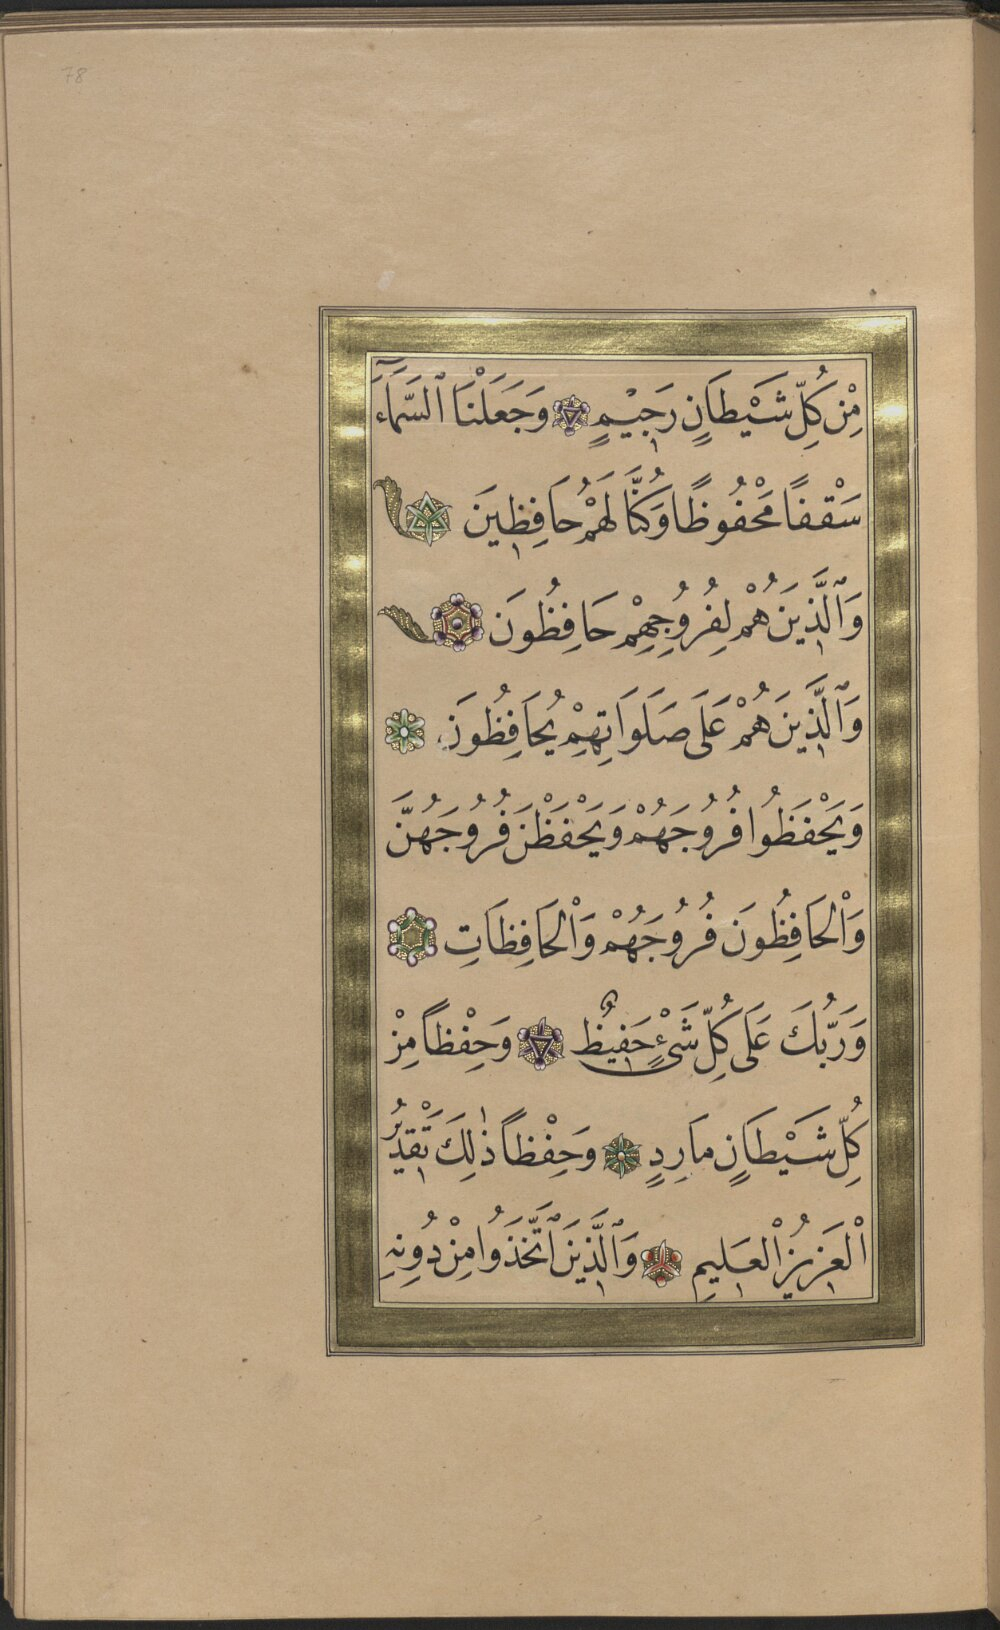 78
مِنْ كُلِّ شَيْطَانٍ رَجِيمٍ وَجَعَلْنَا ٱلسَّمَٓاءَ
سَقْفًا مَحْفُوظًا وَكُنَّا لَهُمْ حَافِظِينَ
وَٱلَّذِينَ هُمْ لِفُرُوجِهِمْ حَافِظُونَ
وَٱلَّذِينَ هُمْ عَلَى صَلَوَاتِهِمْ يُحَافِظُونَ
وَيَحْفَظُوا فُرُوجَهُمْ وَيَحْفَظْنَ فُرُوجَهُنَّ
وَاْلحَافِظُونَ فُرُوجَهُمْ وَاْلحَافِظَاتِ
وَرَبُّكَ عَلَى كُلِّ شَيْءٍ حَفِيظٌ وَحِفْظاً مِنْ
كُلِّ شَيْطَانٍ مَارِدٍ وَحِفْظاً ذٰلِكَ تَقْدِيرُ
اْلعَزِيزِ اْلعَلِيمِ وَٱلَّذِينَ ٱتَّخَذُوا مِنْ دُونِهِ